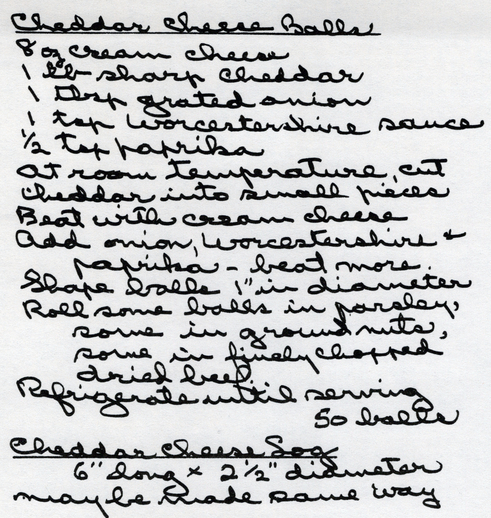 Cheddar Cheese Balls
8 oz cream cheese
1 lb sharp cheddar
1 tbsp grated onion
1 tsp Worcestershire sauce
1/2 tsp paprika
At room temperature, cut
cheddar into small pieces
Beat with cream cheese
Add onion, Worcestershire +
paprika - beat more.
Shape balls 1" in diameter
Roll some balls in parsley,
some in ground nuts,
some in finely chopped
dried beef.
Refrigerate until serving
50 balls
Cheddar Cheese Log
6" long x 2 1/2" diameter
may be made same way